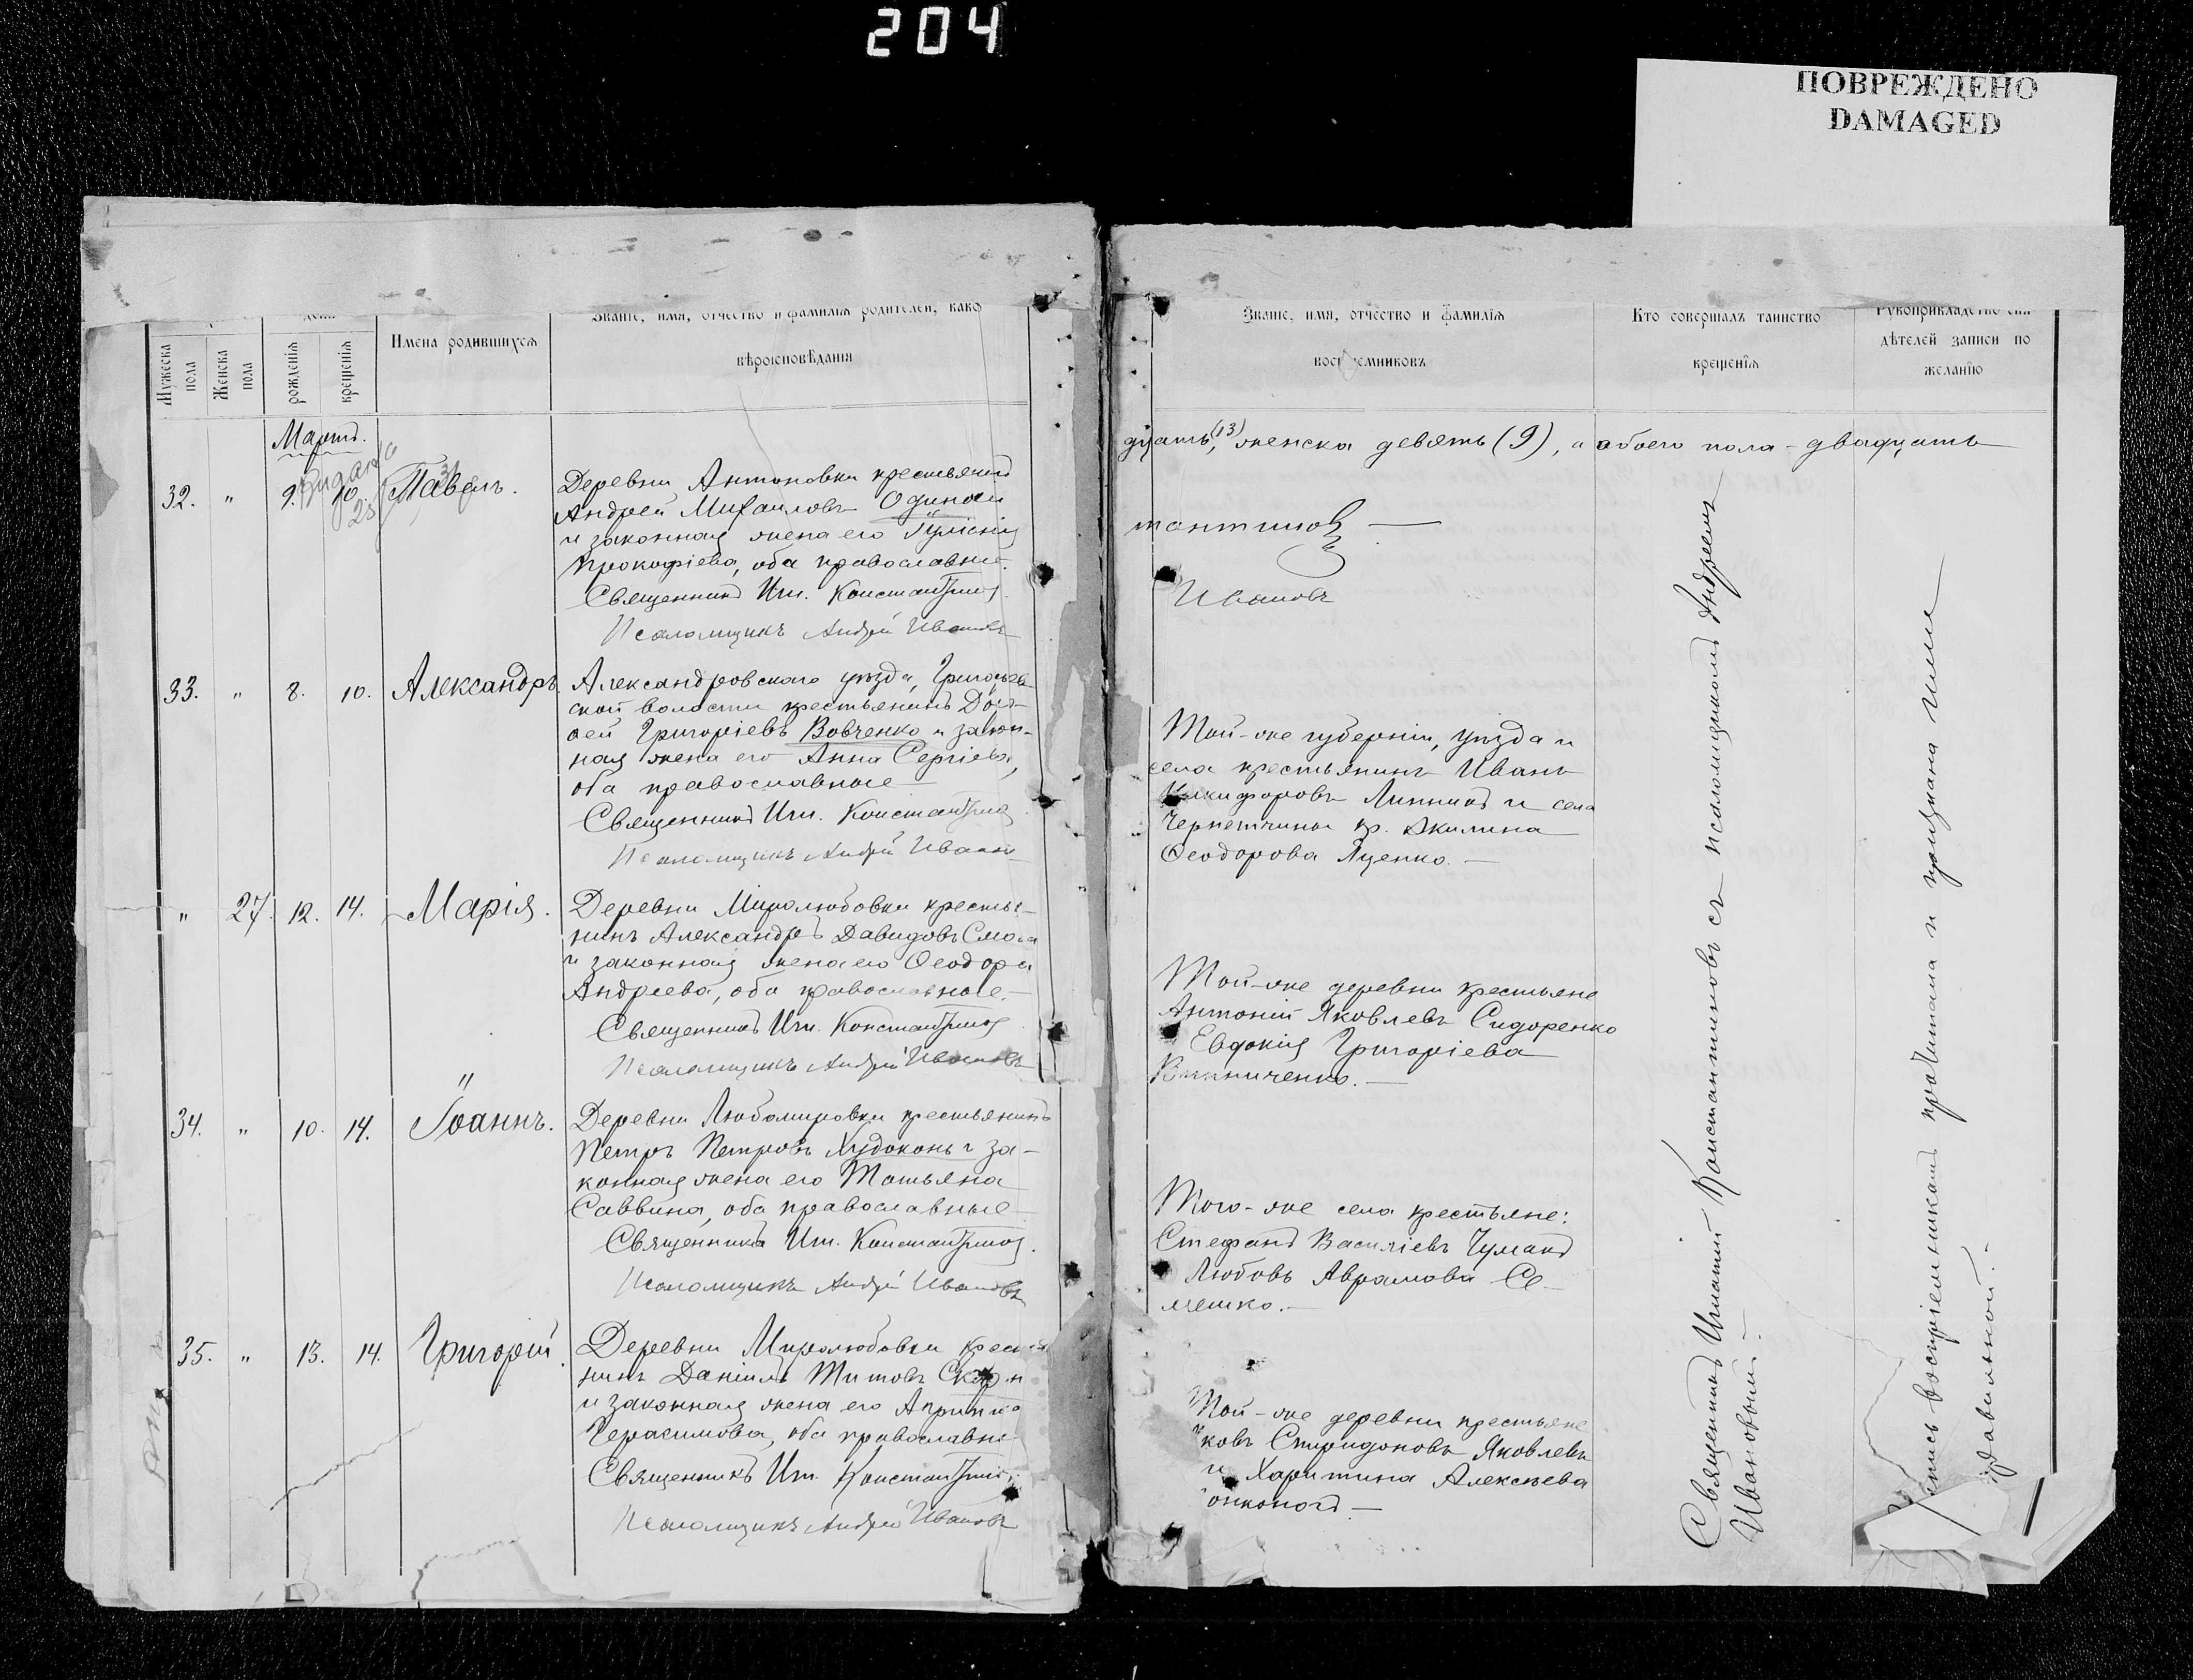 204
ПОВРЕЖДЕНО
DAMAGED
Званіе, имя, отчество и фамилія родителей, какого
Имена родившихся
вѣроисповѣданія
Мужеска
пола
Женска
пола
рожденія
крещенія
Мартъ.
32. " 9. 10. Павелъ.
Деревни Антоновки крестьянинъ
Андрей Михаиловъ
и законная жена его
Прокофіева, оба православные.
Священникъ Игн. Константиновъ
Псаломщикъ Андрей Ивановъ
33. " 8. 10. Александръ
Александровскаго уѣзда,
ской волости крестьянинъ
Григоріевъ Вовченко и закон-
ная жена его Анна Сергіева,
оба православные
Священникъ Игн. Константиновъ
Псаломщикъ Андрей Ивановъ
" 27. 12. 14. Марія.
Деревни Миролюбовки крестья-
нинъ Александръ Давидовъ
и законная жена его Ѳеодора
Андреева, оба православные.
Священникъ Игн. Константиновъ
Псаломщикъ Андрей Ивановъ
"
34. " 10. 14. Іоаннъ.
Деревни Любомировки крестьянинъ
Петръ Петровъ Худоконь и за-
конная жена его Татьяна
Саввина, оба православные
Священникъ Игн. Константиновъ.
Псаломщикъ Андрей Ивановъ
35. " 13. 14. Григорій.
Деревни Миролюбовки
нинъ Даніилъ Титовъ
и законная жена его
Герасимова, оба православные
Священникъ Игн. Константиновъ
Псаломщикъ Андрей Ивановъ
Званіе, имя, отчество и фамилія
воспріемниковъ
Кто совершалъ таинство
крещенія
Рукоприкладство сви-
дѣтелей записи по
желанію
дцать (13), женска девять (9), а обоего пола - двадцать
тантиновъ —
Ивановъ
Той-же губерніи, уѣзда и
села крестьянинъ Иванъ
Никифоровъ и села
Чернетчины кр. Акилина
Ѳеодорова Яценко. —
Той-же деревни крестьяне
Антоній Яковлевъ Сидоренко
Евдокія Григоріева
Винниченко. —
Того-же села крестьяне:
Стефанъ Василіевъ Чумакъ
Любовь Аврамова Се-
мешко. —
Той-же деревни крестьяне
Спиридоновъ Яковлевъ
и Харитина Алексѣева
Священникъ Игнатій Константиновъ съ псаломщикомъ Андреемъ
Ивановымъ. —
воспріемникамъ прочитана и признана ими
правильной. —